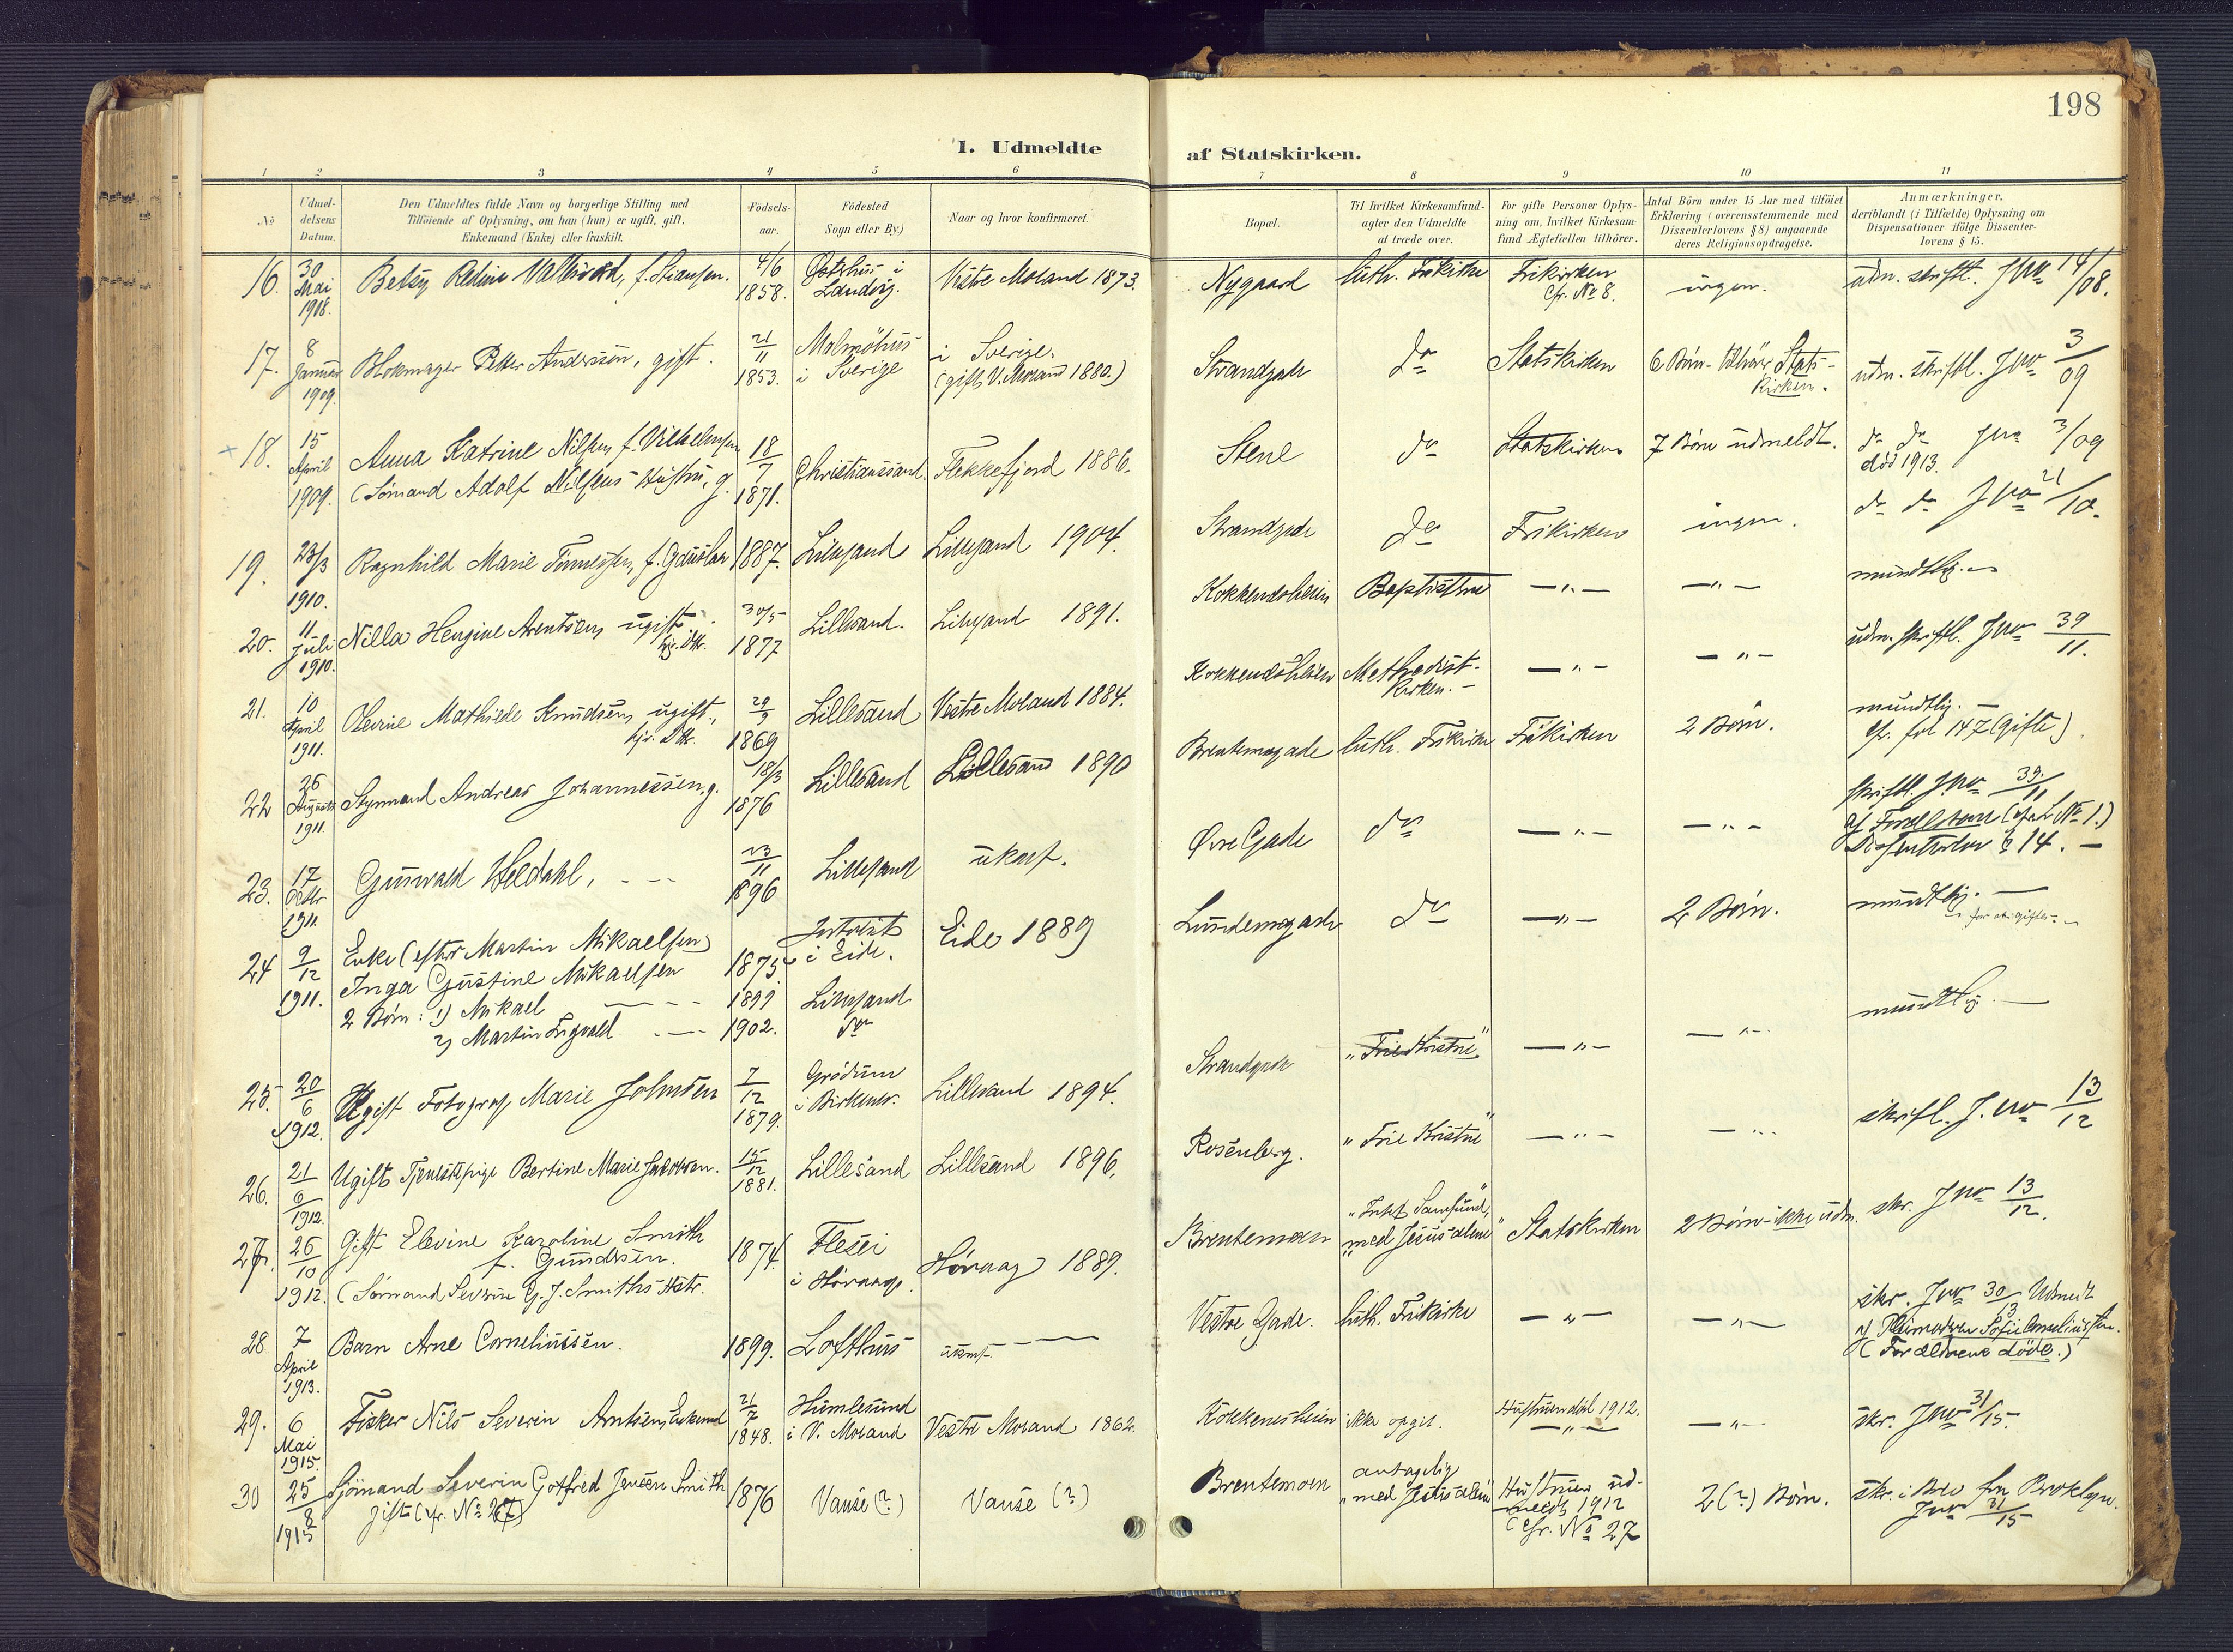 198
I. Udmeldte
af Statskirken.
1 2 3 4 5 6
7 8 9 10 11
No
Udmel-
delsens
Datum.
Den Udmeldtes fulde Navn og borgerlige Stilling med
Tilföiende af Oplysning, om han (hun) er ugift, gift,
Enkemand (Enke) eller fraskilt.
Födsels-
aar.
Födested
Sogn eller By.)
Naar og hvor konfirmeret.
Bopæl.
Til hvilket Kirkesamfund
agter den Udmeldte
at træde over.
For gifte Personer Oplys-
ning om, hvilket Kirkesam-
fund Ægtefællen tilhörer.
Antal Börn under 15 Aar med tilföiet
Erklæring (overensstemmende med
Dissenterlovens § 8) angaaende
deres Religionsopdragelse.
Anmærkninger,
deriblandt (i Tilfælde) Oplysning om
Dispensationer ifölge Dissenter-
lovens § 15.
16. 30 Mai 1908. Betsy 4/6 1858. i Landvig. Vestre Moland 1873.
Nygaard luth. Frikirke Frikirken cfr. No 8. ingen. udm. skriftl. Jno 14/08.
17. 8 Januar 1909. Blokmager Petter Anderssön, gift. 21/11 1853. Malmöhus i Sverige i Sverige. (gift V. Moland 1880.)
Strandgade do Statskirken 6 Börn - tilhörer Stats-
kirken. udm. skriftl. Jno 3/09
18. 15 April 1909. Anna Katrine Nilsen f. Vilhelmsen
(Sömand Adolf Nilsens Hustru, g. 18/7 1871. Christianssand. Flekkefjord 1886.
Stene do Statskirken 7 Börn udmeldt. do do Jno 3/09
död 1913.
19. 23/3 1910. Ragnhild Marie f. 1887. Lillesand Lillesand 1904.
Strandgade do Frikirken ingen. do do Jno 21/10.
20. 11 Juli 1910. Nilla Arentsen ugift. 30/5 1877 Lillesand. Lillesand 1891.
Kokkenesheien Baptisterne — " — — " — mundtlig. —
21. 10 April 1911. Mathilde Knudsen, ugift. 29/9 1869 Lillesand Vestre Moland 1884.
Kokkenesheien Methodist-
kirken. — — " — — " — udm. skriftl. Jno 39/11.
22 26 August 1911. Styrmand Andreas Johannessen, g. 18/3 1876 Lillesand Lillesand 1890
Brentemogade luth. Frikirke Frikirken 2 Börn. mundtlig. —
cfr. fol 147 (gifte).
23. 17 Octbr 1911. Gunvald Heldahl, - — 23/11 1896 Lillesand ukonf.
Øvre Gade do — " — — " — skriftl. Jno 39/11
af Forældrene
§ 14. —
24 9/12 1911. Enke (efter Martin Mikaelsen)
Inga Gustine Mikaelsen 1875. i Eide. Eide 1889
2 Börn: 1) Mikael 1899 Lillesand
2) Martin Sigvald 1902. do
Lundemogade do — " — 2 Börn. mundtlig. —
25. 20/6 1912. Ugift Fotograf Marie Johnsen 7/12 1879. i Birkenes. Lillesand 1894.
Strandgade "Frie Kristne" — " — — " — mundtlig. —
26. 21/6 1912. Ugift Tjenestepige Bertine Marie Jacobsen. 15/12 1881. Lillesand Lillesand 1896.
Rosenberg. "Frie Kristne" — " — — " — skriftl. J. no 13/12
27. 26/10 1912. Gift Elevine Karoline Smith
f. Gundersen.
(Sömand Severin G. J. Smiths Hstr. 1874. i Høvaag. Høvaag 1889.
Brentemoen Samfund,
"med Jesus alene" Statskirken 2 Börn - ikke udm. skr. Jno 13/12.
28. 7 April 1913. Barn Arne Corneliussen. 1899. Lofthus ukonf. —
Vestre Gade. luth. Frikirke — " — — " — skr. Jno 30/13 Udmeldt
af Pleiemoderen Sofie Corneliussen.
(Forældrene döde.)
29. 6 Mai 1915. Fisker Nils Severin Arntsen, Enkemand 21/7 1848. Humlesund i V. Moland Vestre Moland 1862.
Kokkenesheien ikke opgit. Hustruen död 1912.
— " — — " — skr. Jno 31/15.
30 25/8 1915 Sjömand Severin Gotfred Jensen Smith
gift (cfr. No 27) 1876 Vanse (?) Vanse (?)
Brentemoen antagelig
"med Jesus alene" Hustruen ud-
meldt 1912
(cfr. No 27 2 (?) Börn. skr. i Brev fra Broklyn.
Jno 31/15